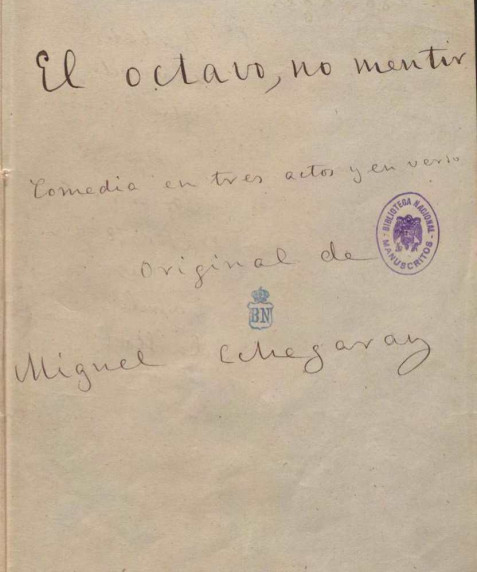 El octavo, no mentir
Comedia en tres actos y en verso
Original de
BIBLIOTECA NACIONAL
MANUSCRITOS
BN
Miguel Echegaray